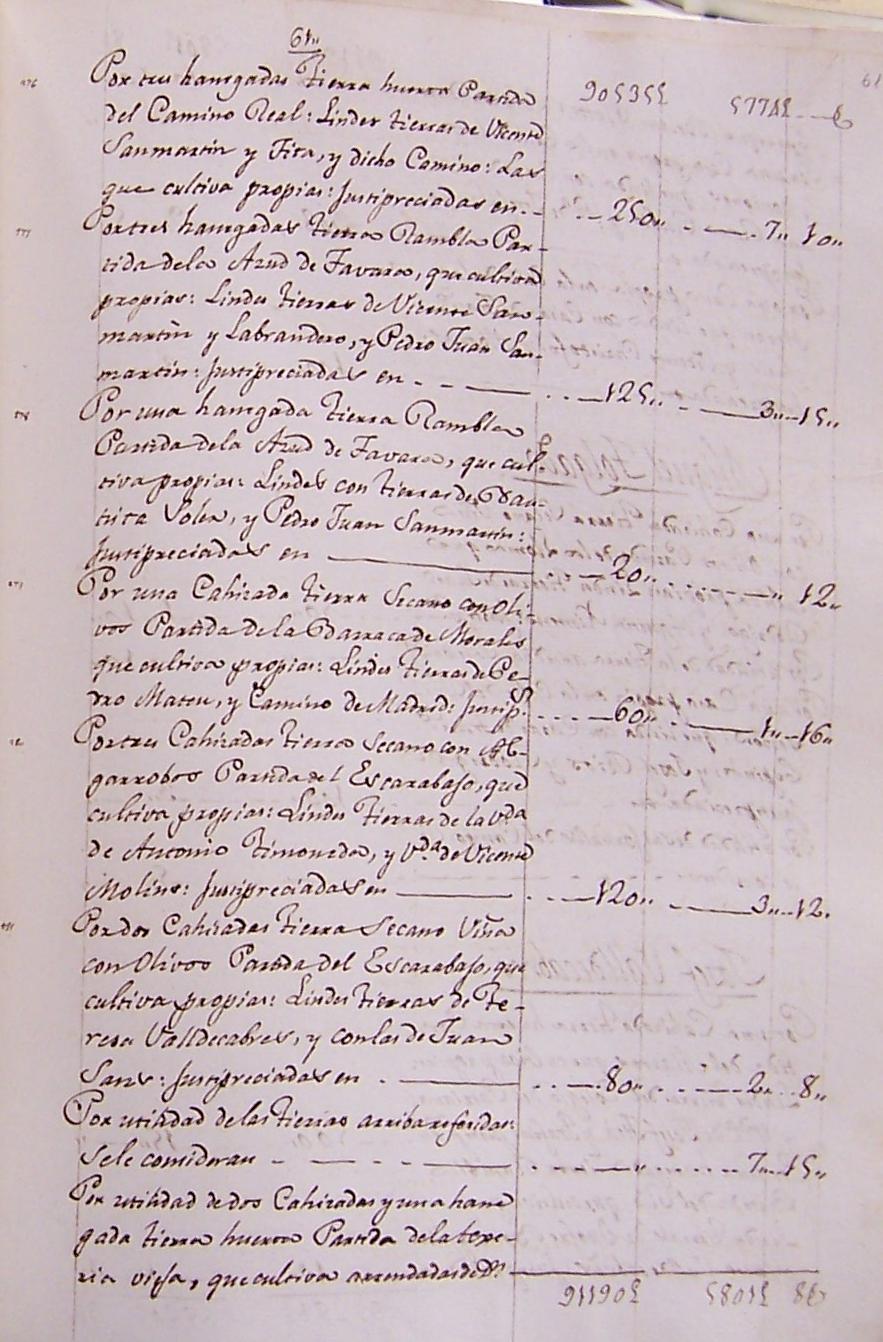 61,,
Por tres hanegadas tierra huerta Partida
del Camino Real: Lindes tierras de Vicente
Sanmartin y Tita, y dicho Camino: Las
que cultiva propias: Justipreciadas en.. 250,, 7,, 10,,
Por tres hanegadas tierra Rambla Par-
tida dela Azud de Favara, que cultiva
propias: Lindes tierras de Vicente San-
martin y Labrandero, y Pedro Juan San-
martin: Justipreciadas en 125,, 3,, 15,,
Por una hanegada tierra Rambla
Partida dela Azud de Favara, que cul-
tiva propias: Lindes con tierras de Bau-
tista Soler, y Pedro Juan Sanmartin:
Justipreciadas en 20,, ,, 12,,
Por una Cahizada tierra Secano con Oli-
vos Partida de la Barraca de Morales
que cultiva propias: Lindes tierras de Pe-
dro Mateu, y Camino de Madrid: Justip.s 60,, 1,, 16,,
Por tres Cahizadas tierra Secano con Al-
garrobos Partida del Escarabajo, que
cultiva propias: Lindes tierras de la V.da
de Antonio Timoneda, y V.da de Vicente
Molins: Justipreciadas en 120,, 3,, 12,,
Por dos Cahizadas tierra Secano Viña
con Olivos Partida del Escarabajo, que
cultiva propias: Lindes tierras de Te-
resa Valldecabres, y con las de Juan
Sans: Justipreciadas en 80,, 2,, 8,,
Por utilidad de las tierras arriba referidas:
se le consideran ,, 7,, 15,,
Por utilidad de dos Cahizadas y una hane
gada tierra huerta Partida de la texe-
ria vieja, que cultiva arrendadas de D.n